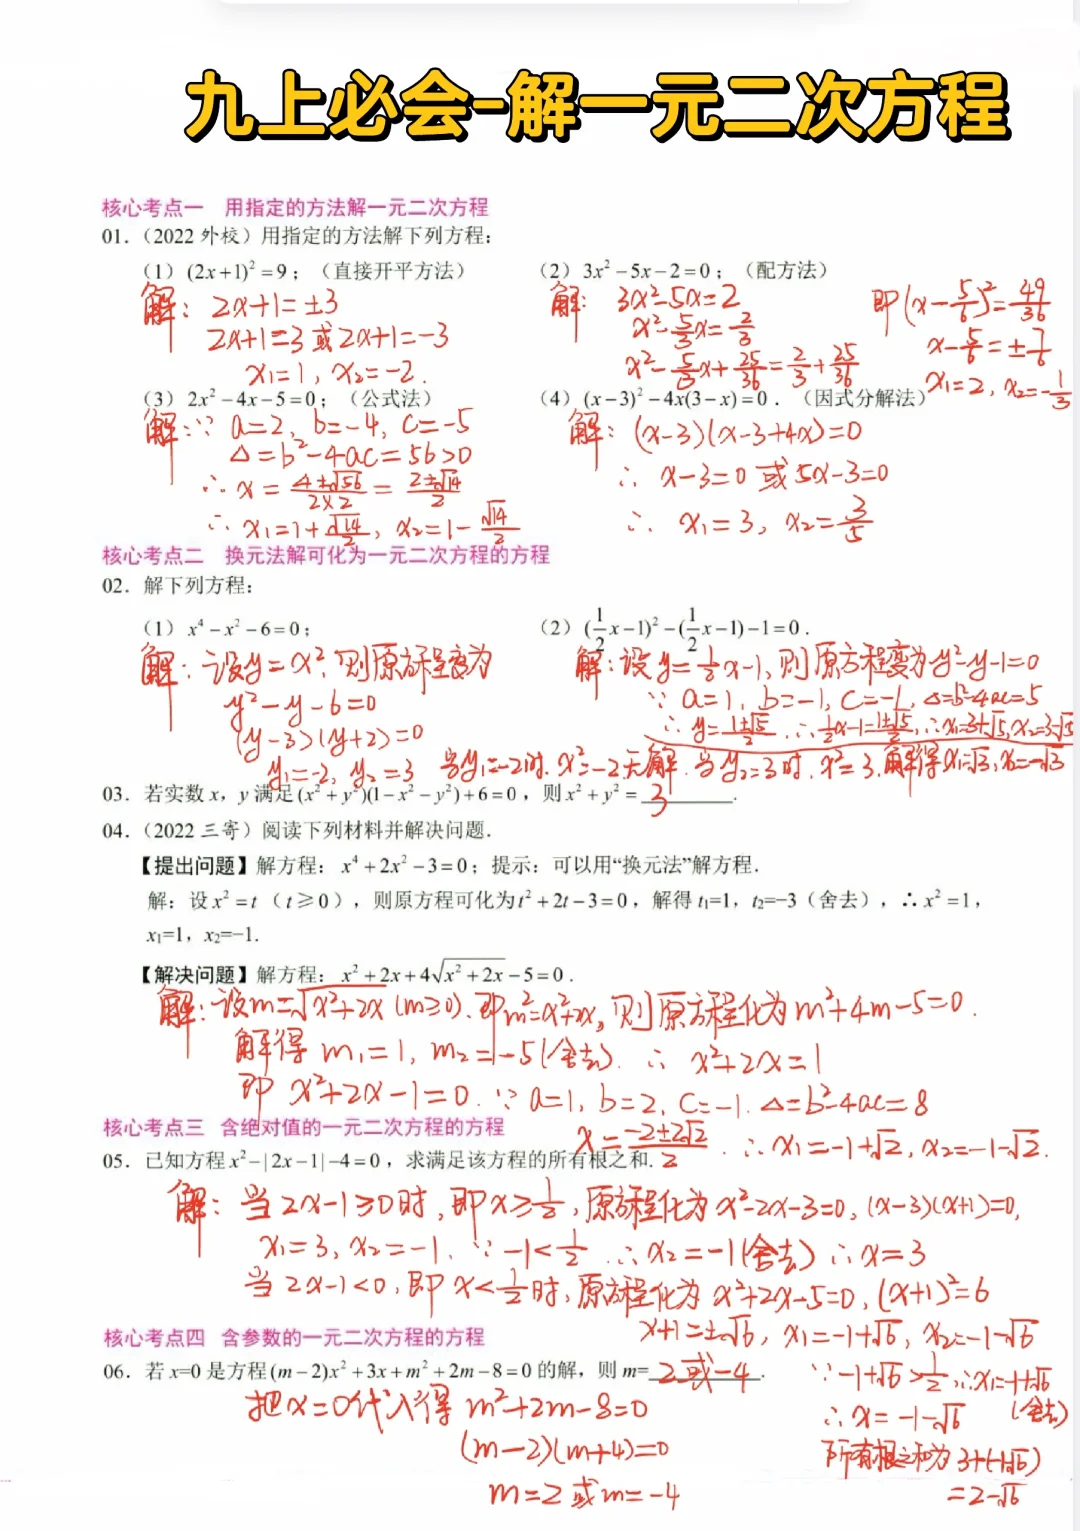 九上必会-解一元二次方程
核心考点一 用指定的方法解一元二次方程
01.（2022 外校）用指定的方法解下列方程：
（1）(2x+1)²=9；（直接开平方法）
解：2x+1=±3
2x+1=3 或 2x+1=-3
x₁=1，x₂=-2.
（2）3x²-5x-2=0；（配方法）
解：3x²-5x=2
x²-5/3x=2/3
x²-5/3x+25/36=2/3+25/36
即(x-5/6)²=49/36
x-5/6=±7/6
x₁=2，x₂=-1/3
（3）2x²-4x-5=0；（公式法）
解：∵a=2，b=-4，c=-5
△=b²-4ac=56>0
∴x=4±√56/2×2=2±√14/2
∴x₁=1+√14/2，x₂=1-√14/2
（4）(x-3)²-4x(3-x)=0．（因式分解法）
解：(x-3)(x-3+4x)=0
∴x-3=0 或 5x-3=0
∴x₁=3，x₂=3/5
核心考点二 换元法解可化为一元二次方程的方程
02. 解下列方程：
（1）x⁴-x²-6=0；
解：设y=x²，则原方程变为
y²-y-6=0
(y-3)(y+2)=0
y₁=-2，y₂=3 当y₁=-2时，x²=-2无解．当y₂=3时，x²=3，解得x₁=√3，x₂=-√3
（2）(1/2x-1)²-(1/2x-1)-1=0.
解：设y=1/2x-1，则原方程变为y²-y-1=0
∵a=1，b=-1，c=-1，△=b²-4ac=5
∴y=1±√5/2．∴1/2x-1=1±√5/2，∴x₁=3+√5，x₂=3-√5
03. 若实数 x，y 满足(x²+y²)(1-x²-y²)+6=0，则x²+y²=3.
04.（2022 三寄）阅读下列材料并解决问题.
【提出问题】解方程：x⁴+2x²-3=0；提示：可以用“换元法”解方程.
解：设x²=t（t≥0），则原方程可化为t²+2t-3=0，解得 t₁=1，t₂=-3（舍去），∴x²=1，
x₁=1，x₂=-1.
【解决问题】解方程：x²+2x+4√x²+2x-5=0.
解：设m=√x²+2x (m≥0)．即m²=x²+2x，则原方程化为m²+4m-5=0.
解得m₁=1，m₂=-5(舍去)．∴x²+2x=1
即x²+2x-1=0．∵a=1，b=2，c=-1．△=b²-4ac=8
x=-2±2√2/2．∴x₁=-1+√2，x₂=-1-√2.
核心考点三 含绝对值的一元二次方程的方程
05. 已知方程x²-|2x-1|-4=0，求满足该方程的所有根之和.
解：当2x-1≥0时，即x≥1/2，原方程化为x²-2x-3=0，(x-3)(x+1)=0，
x₁=3，x₂=-1．∵-1<1/2∴x₂=-1(舍去)∴x=3
当2x-1<0，即x<1/2时，原方程化为x²+2x-5=0，(x+1)²=6
x+1=±√6，x₁=-1+√6，x₂=-1-√6
∵-1+√6>1/2，∴x₁=-1+√6
(舍去)
∴x=-1-√6
所有根之和为3+(-1-√6)
=2-√6
核心考点四 含参数的一元二次方程的方程
06. 若 x=0 是方程(m-2)x²+3x+m²+2m-8=0的解，则 m=2或-4.
把x=0代入得m²+2m-8=0
(m-2)(m+4)=0
m=2或m=-4